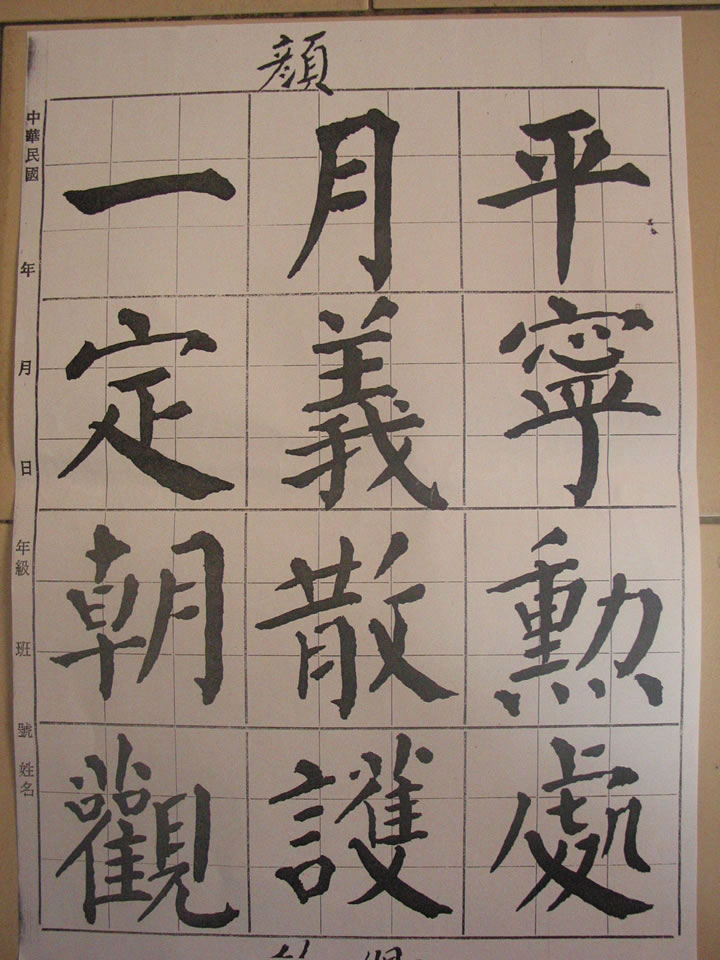 顏
平寧勳處
月義散護
一定朝觀
中華民國 年 月 日 年級 班 號 姓名